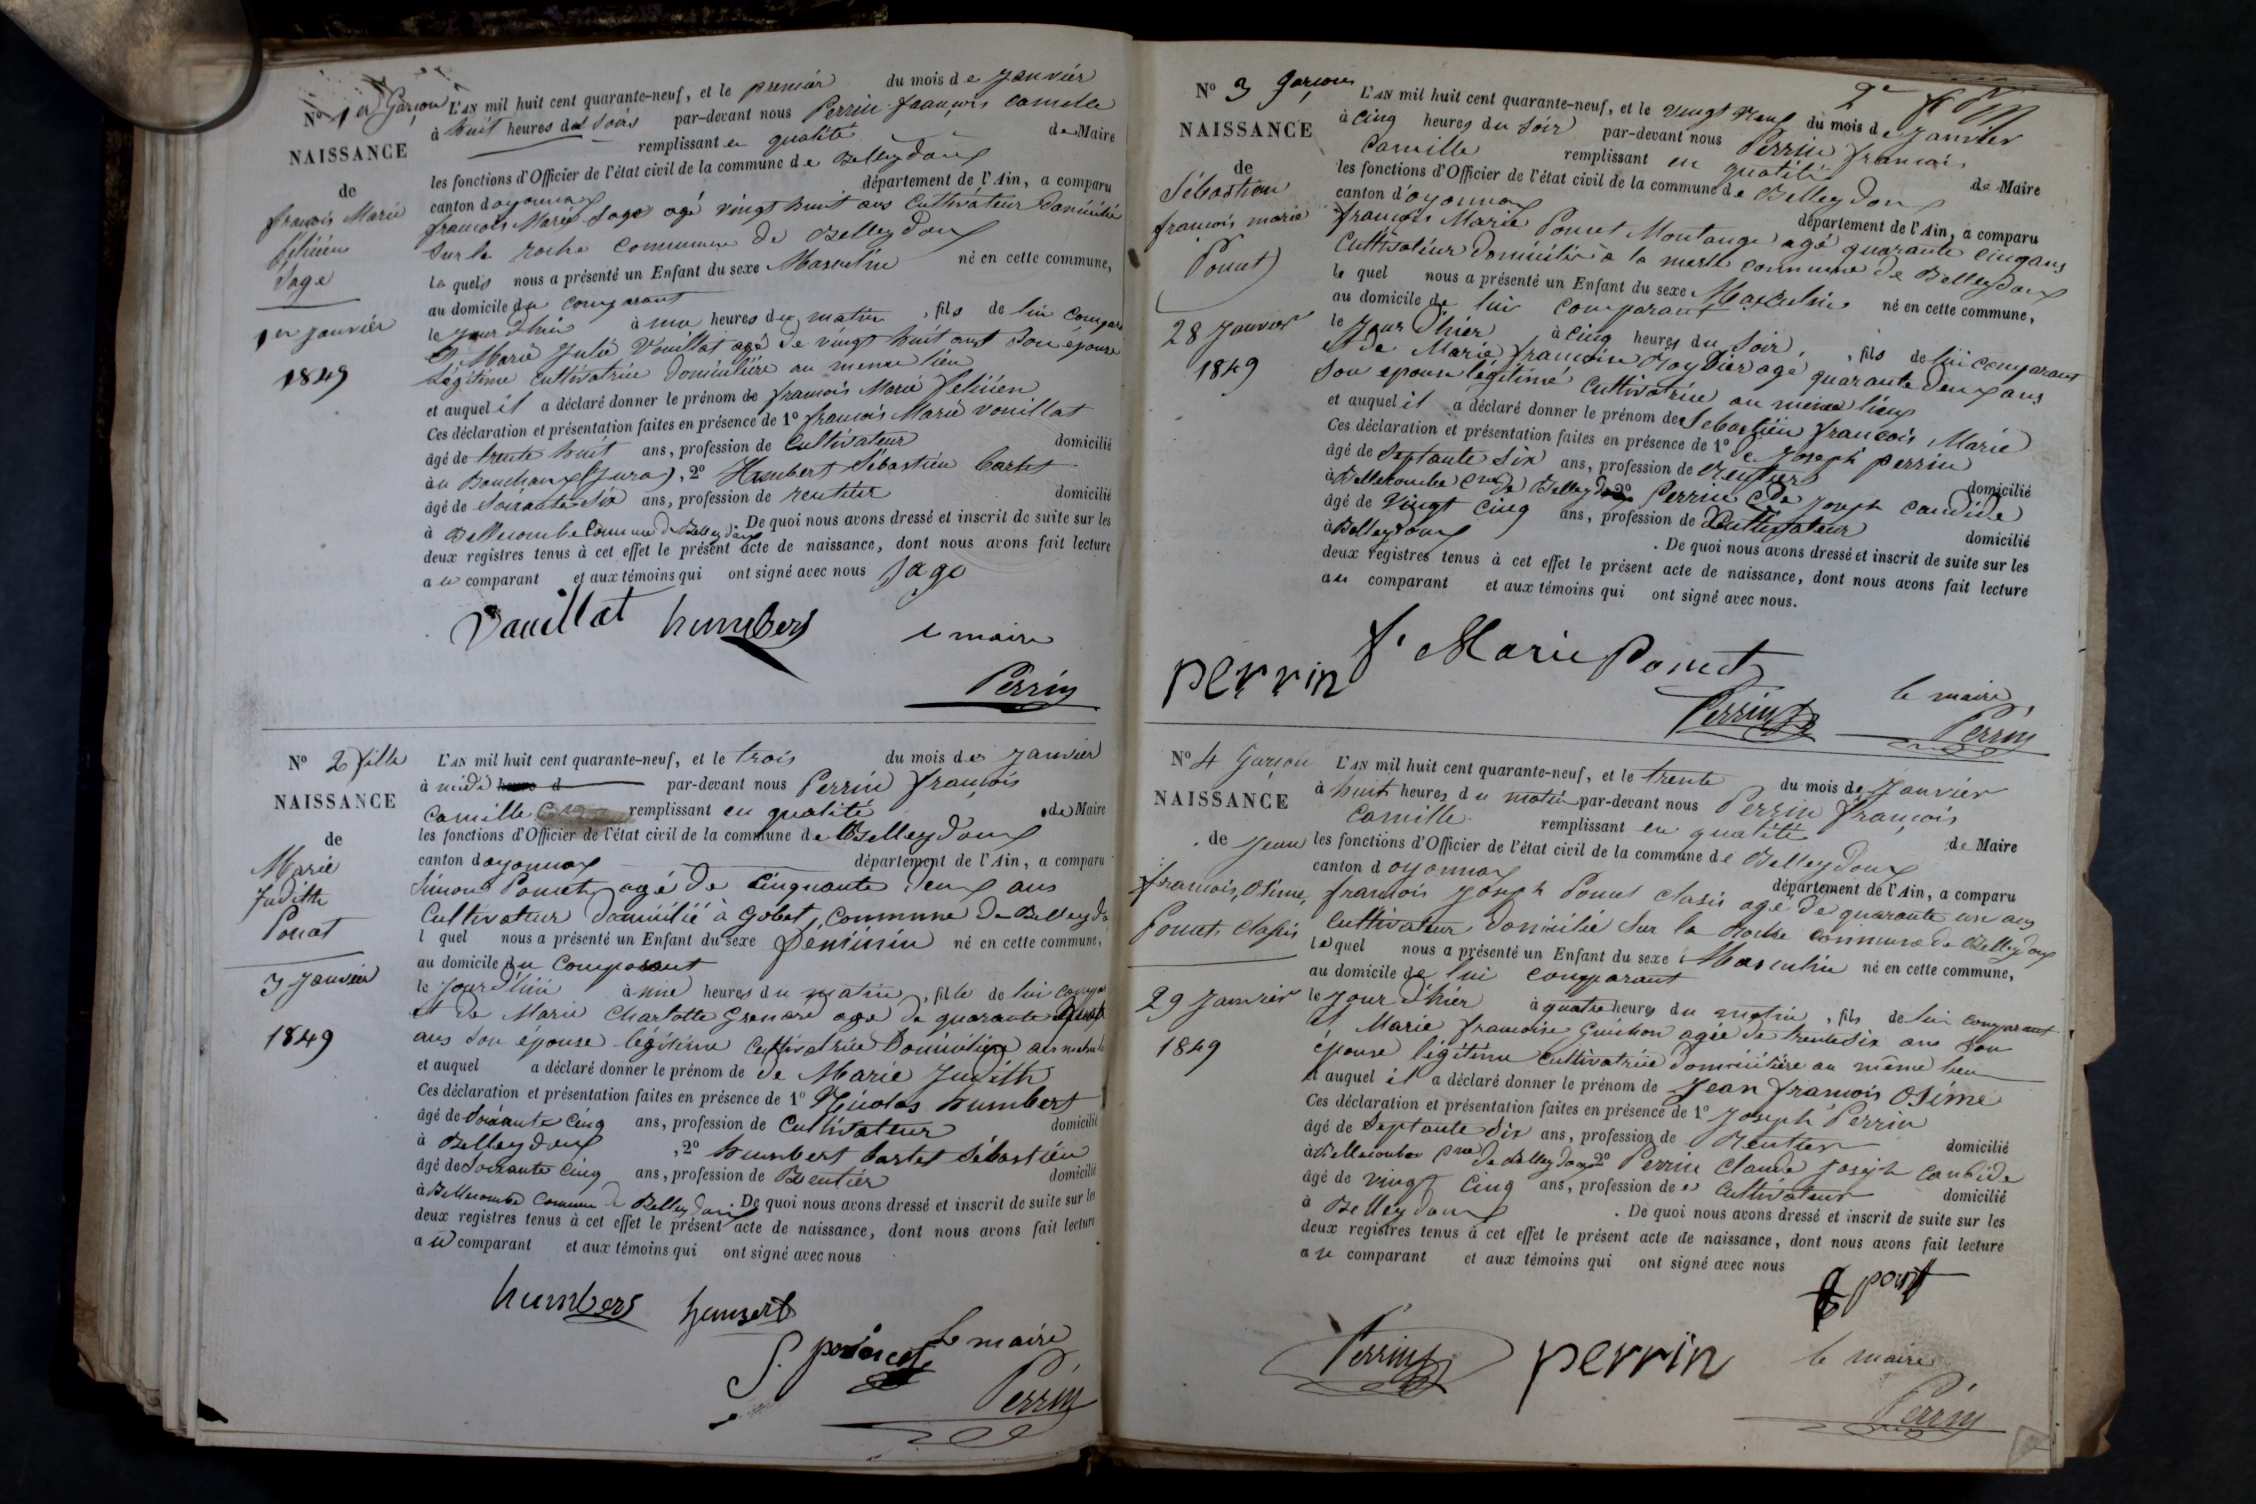 N° 1er Garçon
NAISSANCE
de
françois Marie
félicien
Sage
1er Janvier
1849
L'AN mil huit cent quarante-neuf, et le premier du mois de Janvier
à huit heures du Soir par-devant nous Perrin françois Camille
remplissant en qualité de Maire
les fonctions d'Officier de l'état civil de la commune de Belleydoux
canton d'oyonnax département de l'Ain, a comparu
françois Marie Sage agé vingt huit ans Cultivateur Domicilié
Sur la roche commune de Belleydoux
le quel nous a présenté un Enfant du sexe Masculin né en cette commune,
au domicile du comparant
le jour d'hui à une heures du matin, fils de lui compar
et Marie Julie Vouillat agé de vingt huit ans Son épouse
légitime cultivatrice domicilière au meme lieu
et auquel il a déclaré donner le prénom de françois Marie félicien
Ces déclaration et présentation faites en présence de 1° françois Marie vouillat
âgé de trente huit ans, profession de Cultivateur domicilié
à Bouchoux (Jura), 2° Humbert Sébastien bartet
âgé de Soixante Six ans, profession de rentier domicilié
à Bellecombe Commune de Belleydoux. De quoi nous avons dressé et inscrit de suite sur les
deux registres tenus à cet effet le présent acte de naissance, dont nous avons fait lecture
au comparant et aux témoins qui ont signé avec nous Sage
Vauillat humbers
le maire
Perrin
N° 2 fille
NAISSANCE
de
Marie
Judith
Ponat
3 Janvier
1849
L'AN mil huit cent quarante-neuf, et le trois du mois de Janvier
à midi par-devant nous Perrin françois
Camille remplissant en qualité de Maire
les fonctions d'Officier de l'état civil de la commune de Belleydoux
canton d'oyonnax département de l'Ain, a comparu
Simon Poncet agé de Cinquante deux ans
Cultivateur domicilié à Gobet, Commune de Belleydo
l quel nous a présenté un Enfant du sexe féminin né en cette commune,
au domicile du Comparant
le Jour d'hui à une heures du matin, fille de lui compa
et de Marie Charlotte Grenard age de quarante
ans Son épouse légitime Cultivatrice Domicilière au meme li
et auquel a déclaré donner le prénom de de Marie Judith
Ces déclaration et présentation faites en présence de 1° Nicolas humbert
âgé de Soixante Cinq ans, profession de Cultivateur domicilié
à Belleydoux, 2° humbert bartet Sébastien
âgé de Soixante Cinq ans, profession de Rentier domicilié
à Bellecombe Commune de Belleydoux. De quoi nous avons dressé et inscrit de suite sur les
deux registres tenus à cet effet le présent acte de naissance, dont nous avons fait lecture
au comparant et aux témoins qui ont signé avec nous
humbers humbert
S. poncet Le maire
Perrin
2e
N° 3 garçon
NAISSANCE
de
Sébastien
françois marie
Poncet
28 Janvier
1849
L'AN mil huit cent quarante-neuf, et le vingt neuf du mois de Janvier
à cinq heures du Soir par-devant nous Perrin françois
Camille remplissant en qualité de Maire
les fonctions d'Officier de l'état civil de la commune de Belleydoux
canton d'oyonnax département de l'Ain, a comparu
françois Marie Poncet Montange agé quarante cinq ans
Cultivateur domicilié à la commune de Belleydoux
le quel nous a présenté un Enfant du sexe Masculin né en cette commune,
au domicile de lui comparant
le Jour d'hier à cinq heures du Soir, fils de lui comparant
et de Marie françoise age quarante deux ans
Son épouse légitime Cultivatrice au même lieu
et auquel il a déclaré donner le prénom de Sebastien françois Marie
Ces déclaration et présentation faites en présence de 1° Joseph perrin
âgé de Septante Six ans, profession de Rentier domicilié
à Bellecombe Cne de Belleydoux 2° Perrin Cde Joseph candide
âgé de Vingt Cinq ans, profession de Cultivateur domicilié
à Belleydoux. De quoi nous avons dressé et inscrit de suite sur les
deux registres tenus à cet effet le présent acte de naissance, dont nous avons fait lecture
au comparant et aux témoins qui ont signé avec nous.
perrin f. Marie Poncet
Perrin
le maire
Perrin
N° 4 Garçon
NAISSANCE
de Jean
françois, Osime,
Poncet clasis
29 Janvier
1849
L'AN mil huit cent quarante-neuf, et le trente du mois de Janvier
à huit heures du matin par-devant nous Perrin françois
Camille remplissant en qualité de Maire
les fonctions d'Officier de l'état civil de la commune de Belleydoux
canton d'oyonnax département de l'Ain, a comparu
françois Joseph Poncet clasis agé de quarante un ans
Cultivateur domicilié Sur la Roche commune de Belleydoux
le quel nous a présenté un Enfant du sexe Masculin né en cette commune,
au domicile de lui comparant
le jour d'hier à quatre heures du matin, fils de lui comparant
et Marie françoise Guichon agée de trente six ans Son
épouse légitime cultivatrice domicilière au même lieu
et auquel il a déclaré donner le prénom de Jean françois Osime
Ces déclaration et présentation faites en présence de 1° Joseph Perrin
âgé de Septante Six ans, profession de Rentier domicilié
à Bellecombe Cne de Belleydoux 2° Perrin Claude Joseph Candide
âgé de vingt Cinq ans, profession de Cultivateur domicilié
à Belleydoux. De quoi nous avons dressé et inscrit de suite sur les
deux registres tenus à cet effet le présent acte de naissance, dont nous avons fait lecture
au comparant et aux témoins qui ont signé avec nous
Perrin perrin le maire
Perrin